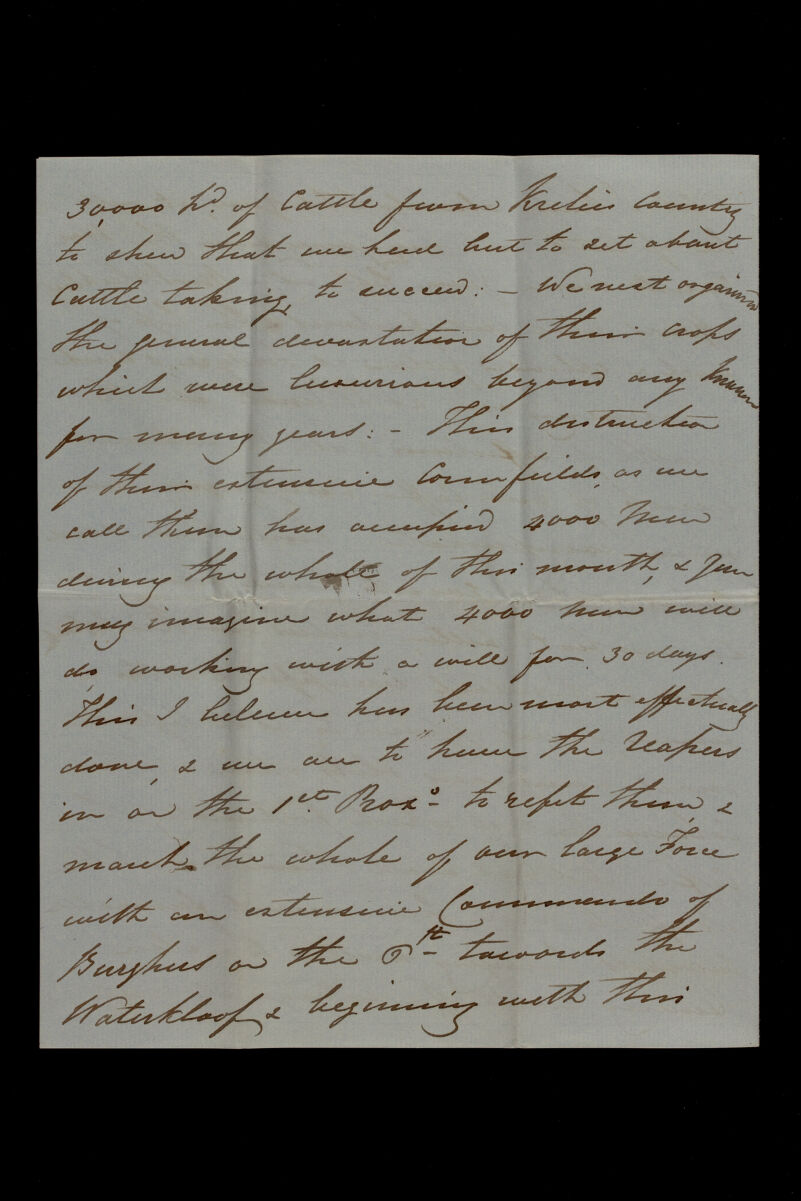 30,000 hd. of Cattle from Krelies Country
to shew that we had but to set about
Cattle taking, to succeed: - We next organized
the general devastation of their crops
which were luxurious beyond any known
for many years: - This distruction
of their extensive Cornfields, as we
call them has occupied 4000 Men
during the whole of this month, & you
may imagine what 4000 Men will
do, working with a will for 30 days.
This I believe has been most effectually
done, & we are to have the Reapers
in on the 1st. Proxo. to refit them, &
march the whole of our large Force
with an extensive Commando of
Burghers on the 6th towards the
Waterkloof, & beginning with this